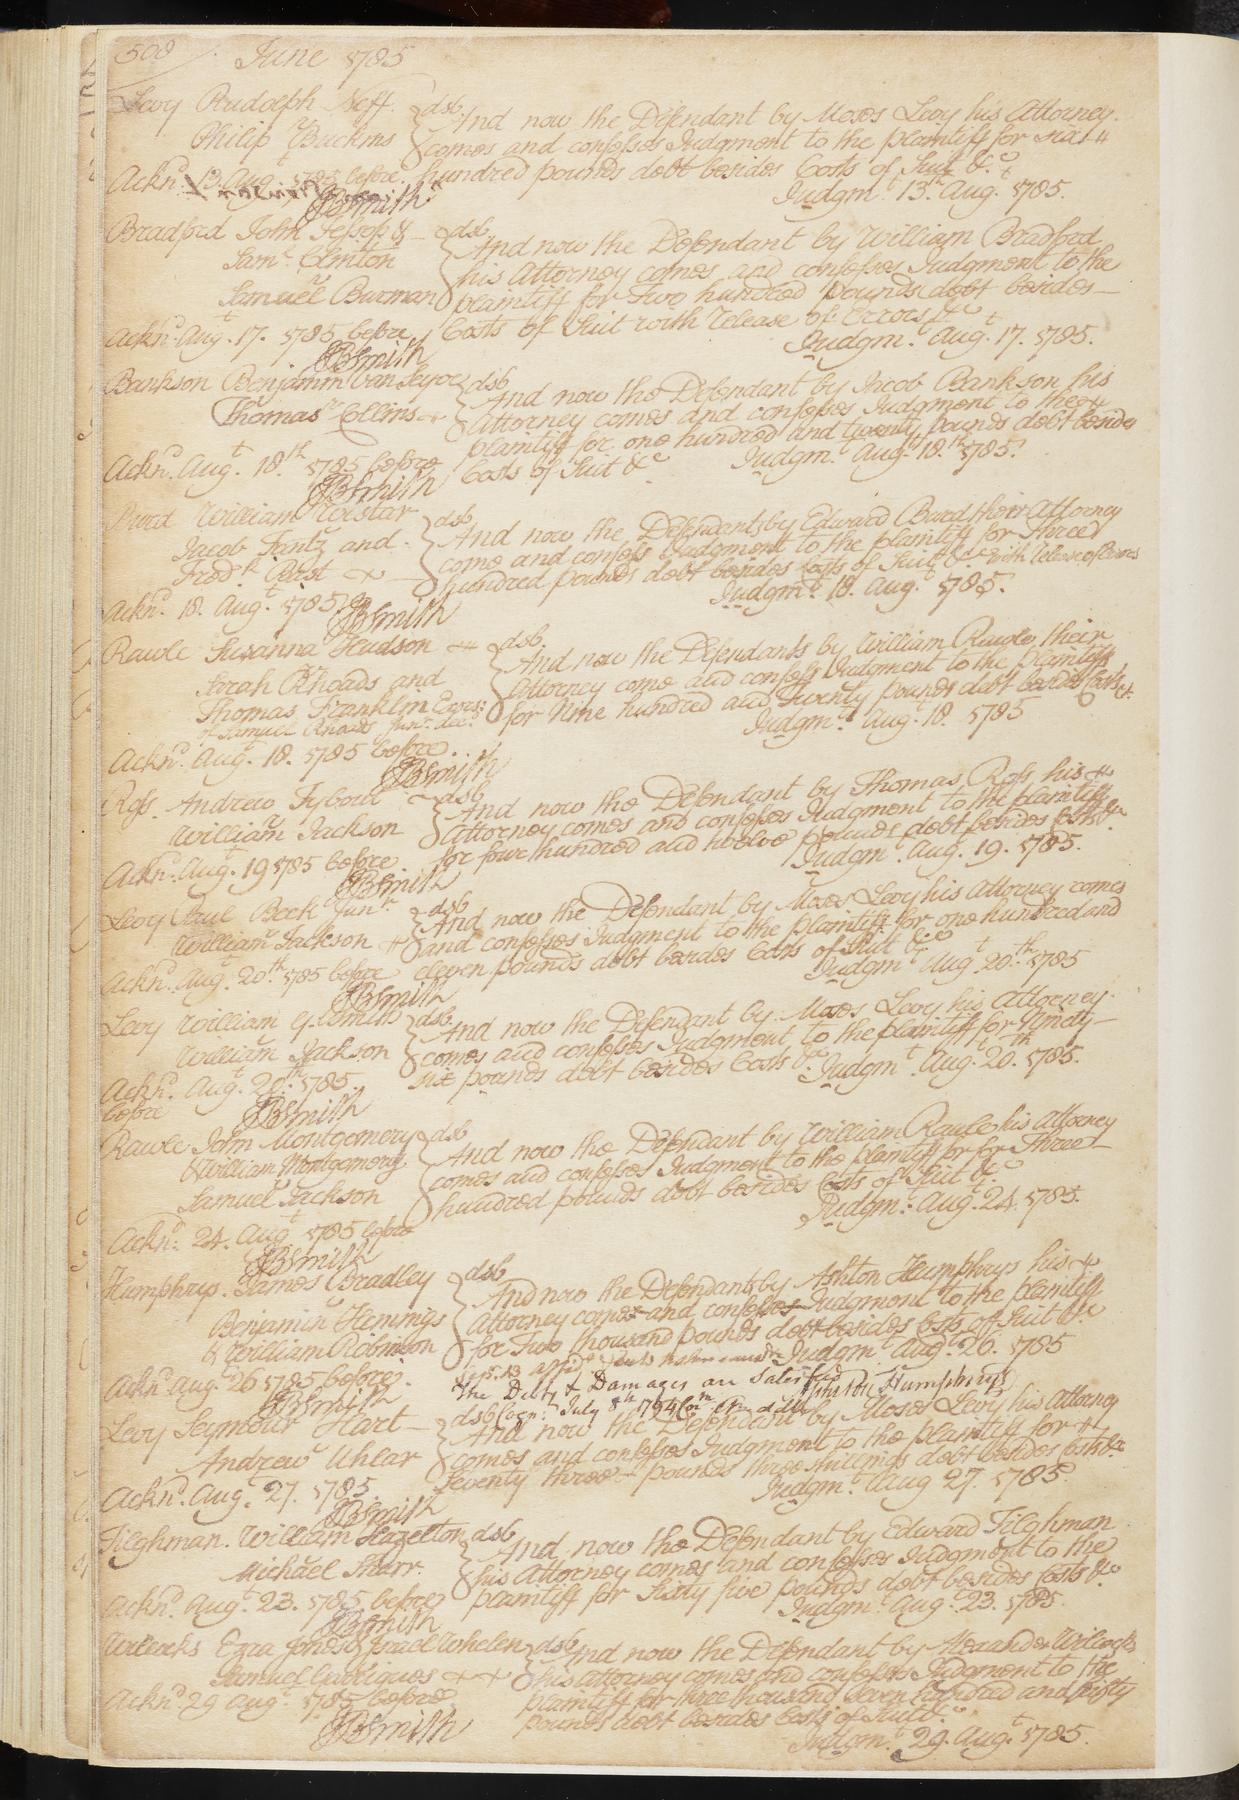 508 June 1785
Levy Rudolph Neff dsb And now the Defendant by Moses Levy his Attorney
Philip Buckius comes and confesses Judgment to the plaintiff for
hundred pounds debt besides Costs of Suit &c
Ackn.d 13. Aug.t 1785 before Judgm.t 13. Aug.t 1785.
JBSmith
Bradford John Jessop & dsb And now the Defendant by William Bradford
Sam.l Clinton his Attorney comes and confesses Judgment to the
Samuel Burman plaintiff for Two hundred pounds debt besides
Costs of Suit with release of Errors &c
Ackn.d Aug.t 17. 1785 before Judgm.t Aug.t 17. 1785.
JBSmith
Bankson Benjamin dsb And now the Defendant by Jacob Bankson his
Thomas Collins Attorney comes and confesses Judgment to the
plaintiff for one hundred and twenty pounds debt besides
Ackn.d Aug.t 18.th 1785 before Costs of Suit &c Judgm.t Aug.t 18.th 1785.
JBSmith
Burd William Wistar dsb And now the Defendants by Edward Burd their Attorney
Jacob and come and confess Judgment to the plaintiff for Three
Fred.k hundred pounds debt besides costs of Suit &c with release of Errors
Ackn.d 18. Aug.t 1785 Judgm.t 18. Aug.t 1785.
JBSmith
Rawle Susanna Hudson dsb And now the Defendants by William Rawle their
Sarah Rhoads and Attorney come and confess Judgment to the plaintiff
Thomas Franklin Exrs: for Nine hundred and Twenty pounds debt besides Costs &c
of Samuel Rhoads Jun.r dec.d Judgm.t Aug.t 18. 1785
Ackn.d Aug.t 18. 1785 before
JBSmith
Ross. Andrew Tybout dsb And now the Defendant by Thomas Ross his
William Jackson Attorney comes and confesses Judgment to the plaintiff
for four hundred and twelve pounds debt besides costs &c
Ackn.d Aug.t 19 1785 before Judgm.t Aug. 19. 1785.
JBSmith
Levy Paul Beck Jun.r dsb And now the Defendant by Moses Levy his Attorney comes
William Jackson and confesses Judgment to the plaintiff for one hundred and
eleven pounds debt besides Costs of Suit &c
Ackn.d Aug.t 20.th 1785 before Judgm.t Aug.t 20.th 1785
JBSmith
Levy William Smith dsb And now the Defendant by Moses Levy his Attorney
William Jackson comes and confesses Judgment to the plaintiff for Ninety
six pounds debt besides Costs &c Judgm.t Aug.t 20.th 1785.
Ackn.d Aug.t 20.th 1785.
before JBSmith
Rawle John Montgomery dsb And now the Defendant by William Rawle his Attorney
& William Montgomery comes and confesses Judgment to the plaintiff for for Three
Samuel Jackson hundred pounds debt besides Costs of Suit &c
Judgm.t Aug.t 24. 1785.
Ackn.d 24. Aug.t 1785 before
JBSmith
Humphrys. James Bradley dsb And now the Defendants by Ashton Humphrys his
Benjamin Hemings Attorney comes and confesses Judgment to the plaintiff
& William Robinson for Two thousand pounds debt besides Costs of Suit &c
Judgm.t Aug.t 26. 1785
Ackn.d Aug.t 26 1785 before The Debt & Damages are Satisfied
JBSmith Ashton Humphrys
July 8th 1794
Levy Seymour Hart dsb And now the Defendant by Moses Levy his Attorney
Andrew Uhlar comes and confesses Judgment to the plaintiff for
Seventy three pounds three shillings debt besides Costs &c
Ackn.d Aug.t 27. 1785. Judgm.t Aug 27. 1785
JBSmith
Tilghman. William Hazelton dsb And now the Defendant by Edward Tilghman
Michael Sharr. his Attorney comes and confesses Judgment to the
plaintiff for Sixty five pounds debt besides Costs &c
Ackn.d Aug.t 23. 1785 before Judgm.t Aug.t 23. 1785.
JBSmith
Wilcocks Ezra Jones & Israel Whelen dsb And now the Defendant by Alexander Wilcocks
Samuel Garrigues his attorney comes and confesses Judgment to the
Ackn.d 29 Aug.t 1785 before plaintiff for three thousand Seven hundred and
pounds debt besides Costs of Suit &c
JBSmith Judgm.t 29. Aug.t 1785.